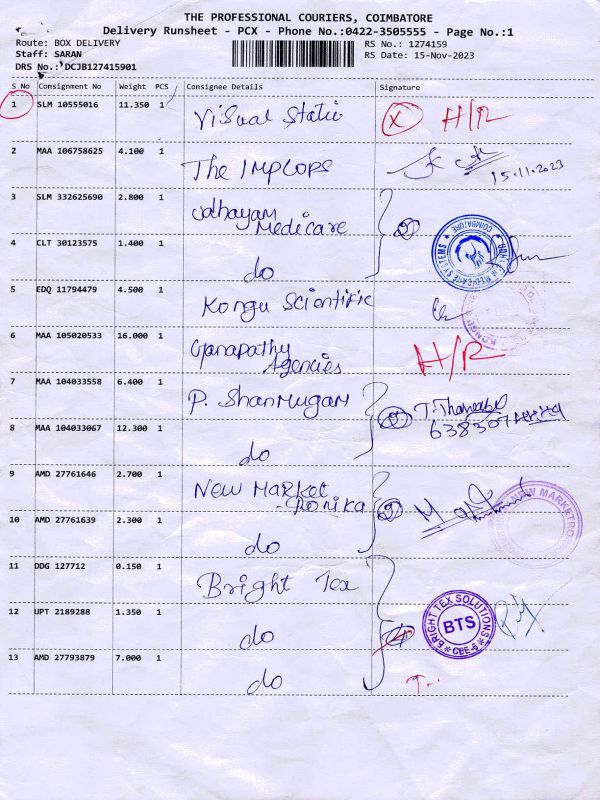 THE PROFESSIONAL COURIERS, COIMBATORE
Delivery Runsheet - PCX - Phone No.:0422-3505555 - Page No.:1
Route: BOX DELIVERY
Staff: SARAN
DRS No.: DCJB127415901
RS No.: 1274159
RS Date: 15-Nov-2023
S No Consignment No Weight PCS Consignee Details Signature
1 SLM 10555016 11.350 1 Visual Static X H/R
2 MAA 106758625 4.100 1 The IMPLOPS 15.11.2023
3 SLM 332625690 2.800 1 Udhayam Medicare
4 CLT 30123575 1.400 1 do
COIMBATORE
5 EDQ 11794479 4.500 1 Kongu Scientific
6 MAA 105020533 16.000 1 Ganapathy Agencies H/R
7 MAA 104033558 6.400 1 P. Shanmugam
8 MAA 104033067 12.300 1 do
9 AMD 27761646 2.700 1 New Market
10 AMD 27761639 2.300 1 do
NEW MARKET
11 DDG 127712 0.150 1 Bright Tex
12 UPT 2189288 1.350 1 do
BRIGHT TEX SOLUTIONS
BTS
CBE-6
13 AMD 27793879 7.000 1 do